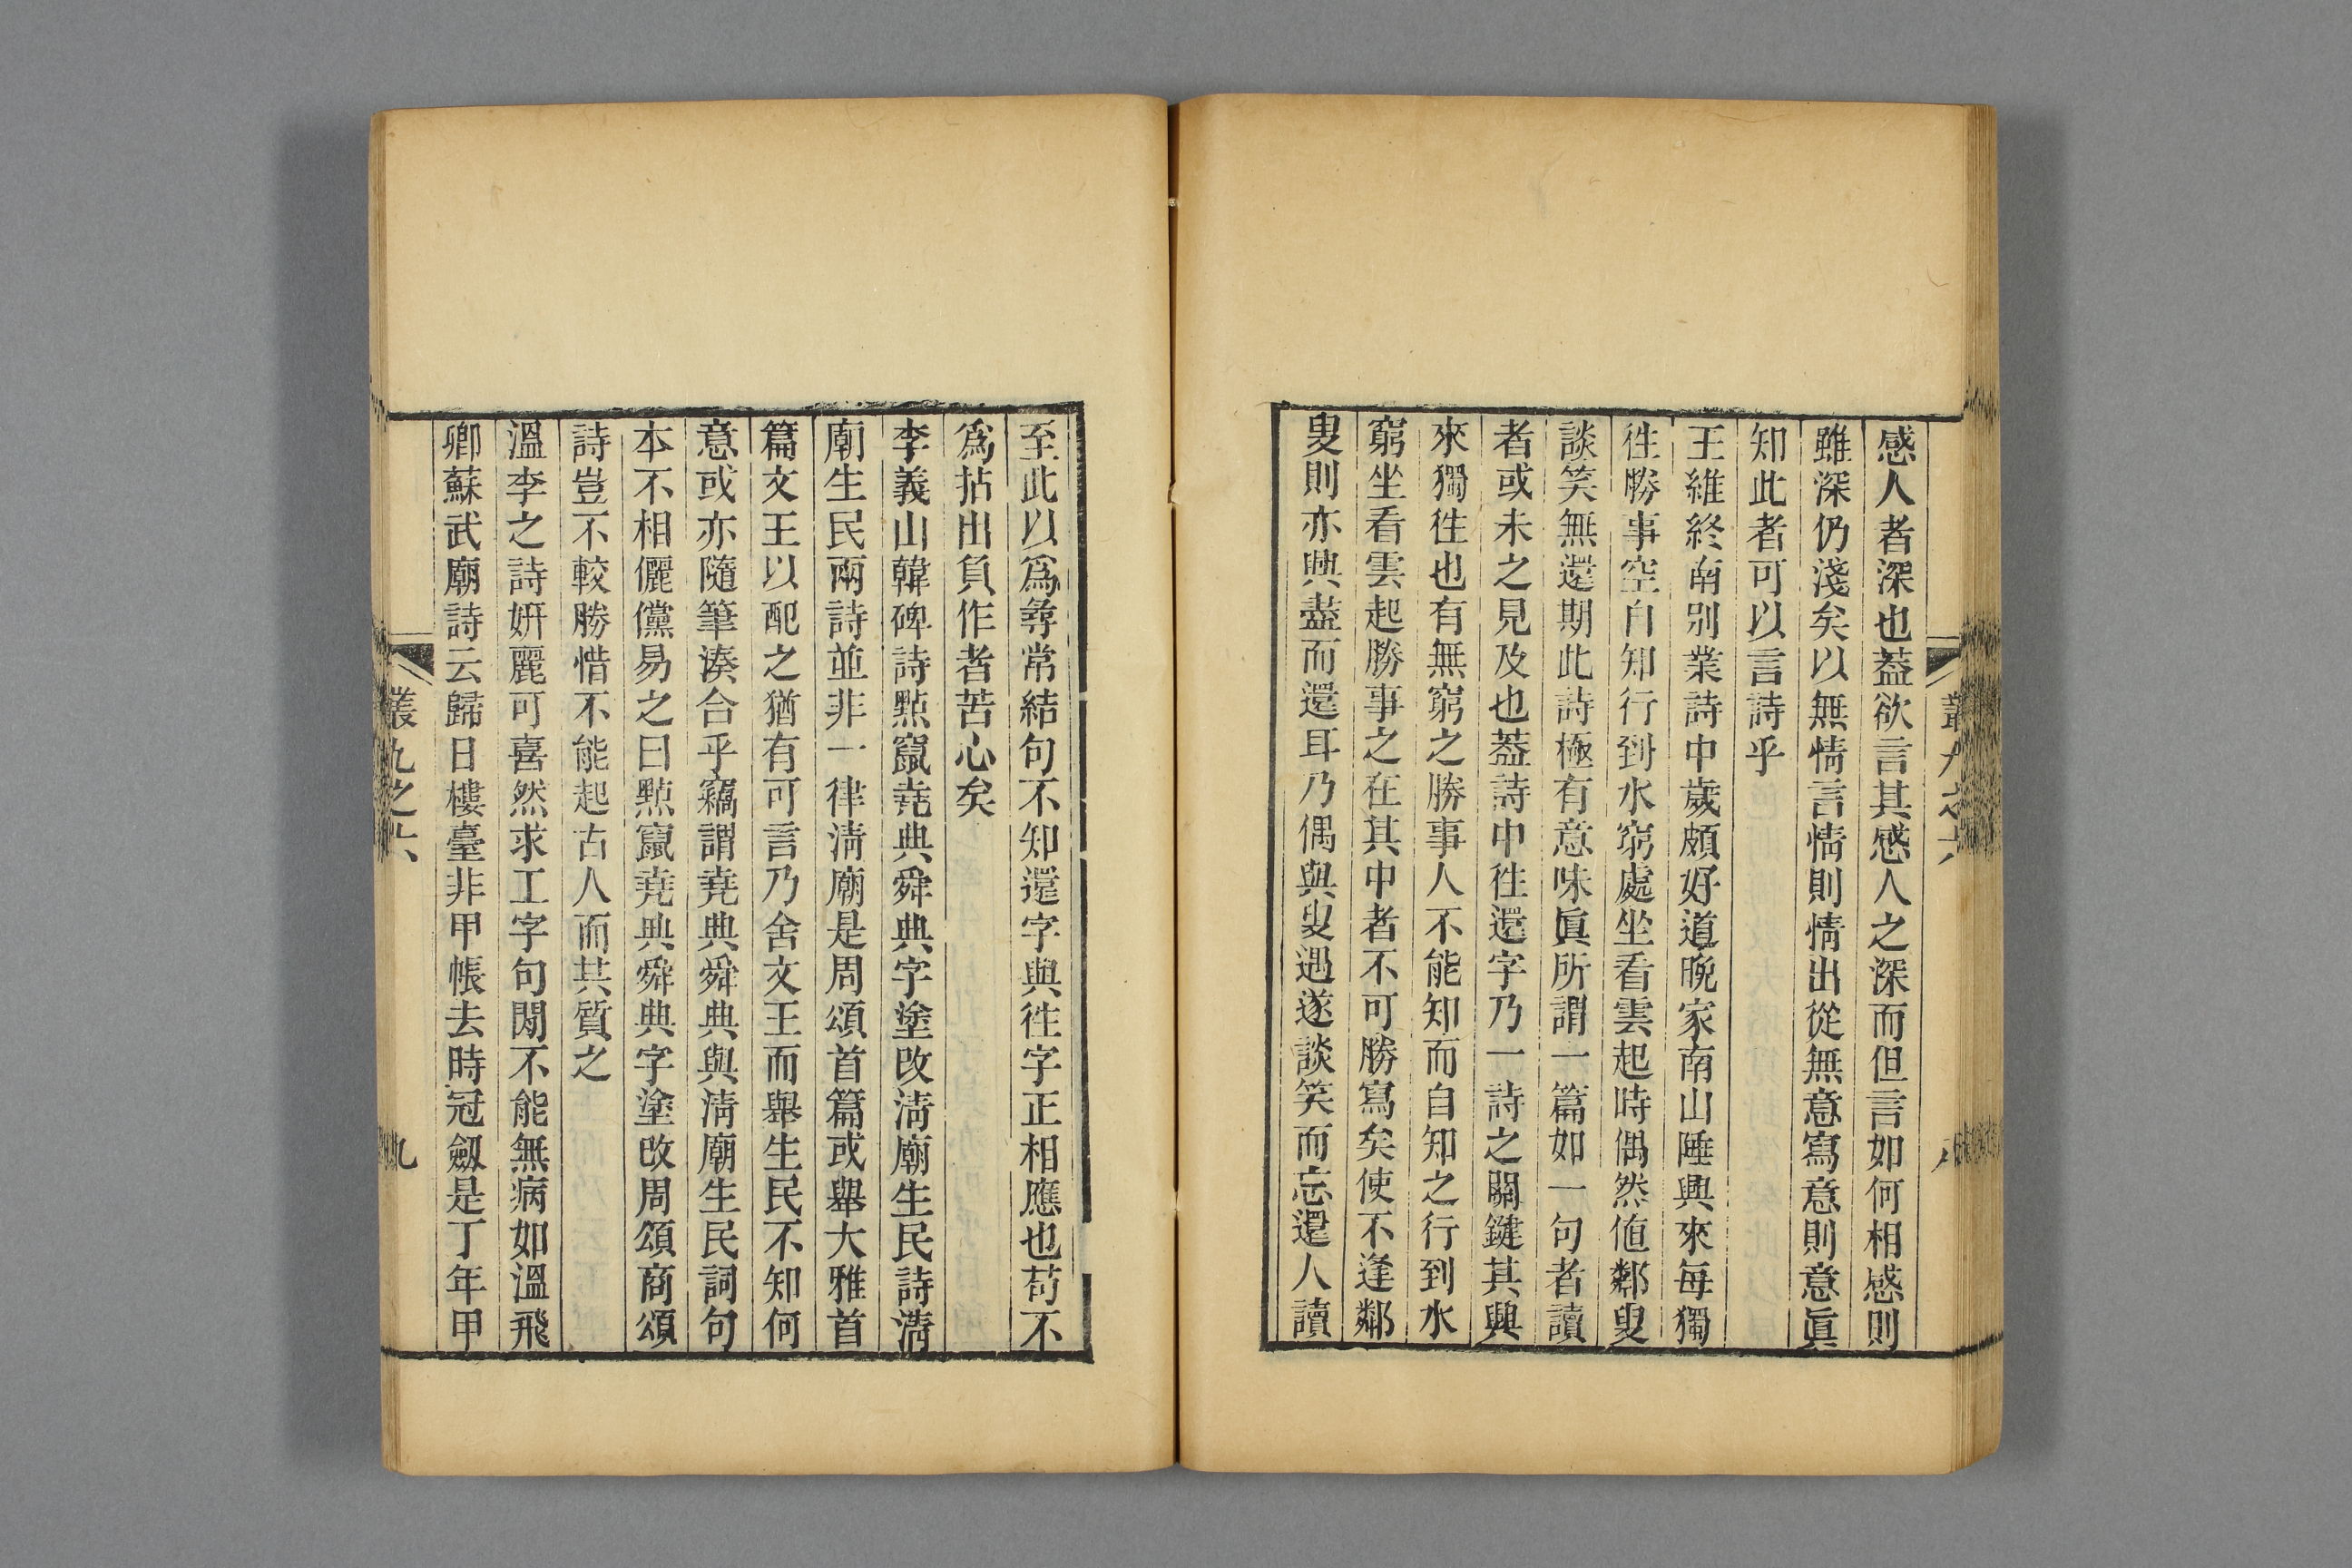 叢九之六
八
感人者深也葢欲言其感人之深而但言如何相感則
雖深仍淺矣以無情言情則情出從無意寫意則意眞
知此者可以言詩乎
王維終南别業詩中歲頗好道晚家南山陲興來每獨
徃勝事空自知行到水窮處坐看雲起時偶然値鄰叟
談笑無還期此詩極有意味眞所謂一篇如一句者讀
者或未之見及也葢詩中徃還字乃一詩之關鍵其興
來獨徃也有無窮之勝事人不能知而自知之行到水
窮坐看雲起勝事之在其中者不可勝寫矣使不逢鄰
叟則亦興盡而還耳乃偶與叟遇遂談笑而忘還人讀
至此以爲尋常結句不知還字與徃字正相應也苟不
爲拈出負作者苦心矣
李義山韓碑詩點竄堯典舜典字塗改淸廟生民詩淸
廟生民兩詩並非一律淸廟是周頌首篇或舉大雅首
篇文王以配之猶有可言乃舍文王而舉生民不知何
意或亦隨筆湊合乎竊謂堯典舜典與淸廟生民詞句
本不相儷儻易之曰點竄堯典舜典字塗改周頌商頌
詩豈不較勝惜不能起古人而共質之
溫李之詩姸麗可喜然求工字句閒不能無病如溫飛
卿蘇武廟詩云歸日樓臺非甲帳去時冠劒是丁年甲
叢九之六
九